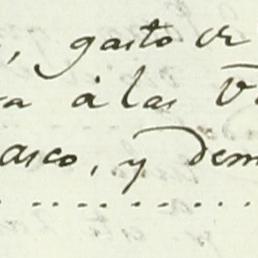 , gasto de
a á las V
asco, y dem